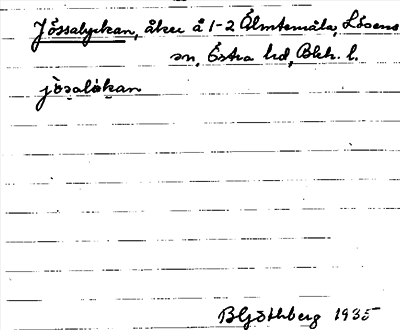 Jössalyckan, åker å 1-2 Älmtemåla, Lösens
sn, Östra hd, Blek. l.
jösalökan
B Göthberg 1935